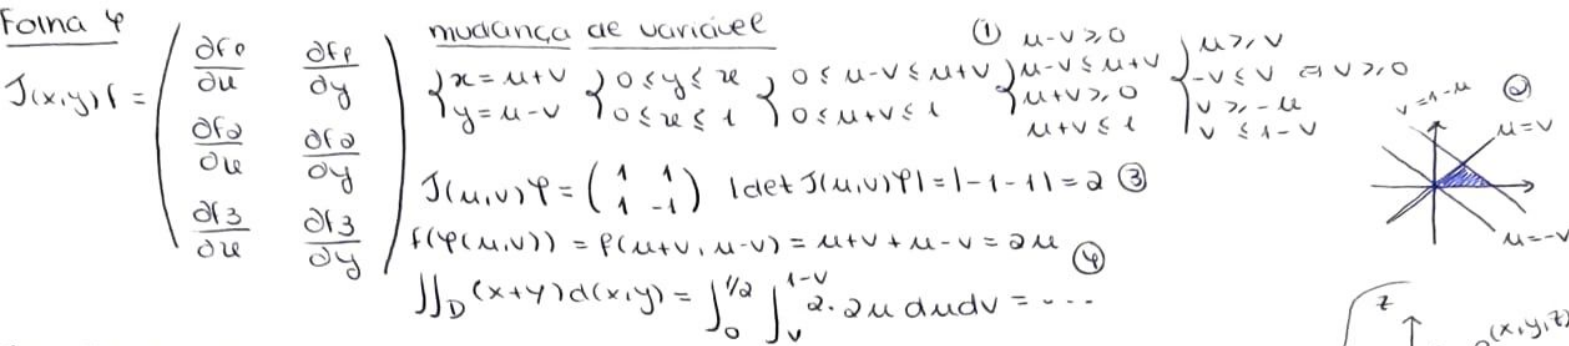 Folha 4
J(x,y)f = ( ∂f1/∂x ∂f1/∂y ; ∂f2/∂x ∂f2/∂y ; ∂f3/∂x ∂f3/∂y )
mudança de variável
{ x = u+v ; y = u-v { 0 ≤ y ≤ x ; 0 ≤ x ≤ 1 { 0 ≤ u-v ≤ u+v ; 0 ≤ u+v ≤ 1 ① { u-v ≥ 0 ; u-v ≤ u+v ; u+v ≥ 0 ; u+v ≤ 1 { u ≥ v ; -v ≤ v ⇒ v ≥ 0 ; v ≥ -u ; v ≤ 1-v
② v=1-u
u=v
u=-v
J(u,v)φ = ( 1 1 ; 1 -1 ) |det J(u,v)φ| = |-1-1| = 2 ③
f(φ(u,v)) = f(u+v, u-v) = u+v+u-v = 2u
④ ∬_D (x+y)d(x,y) = ∫_0^{1/2} ∫_v^{1-v} 2·2u dudv = ...
z
(x,y,z)